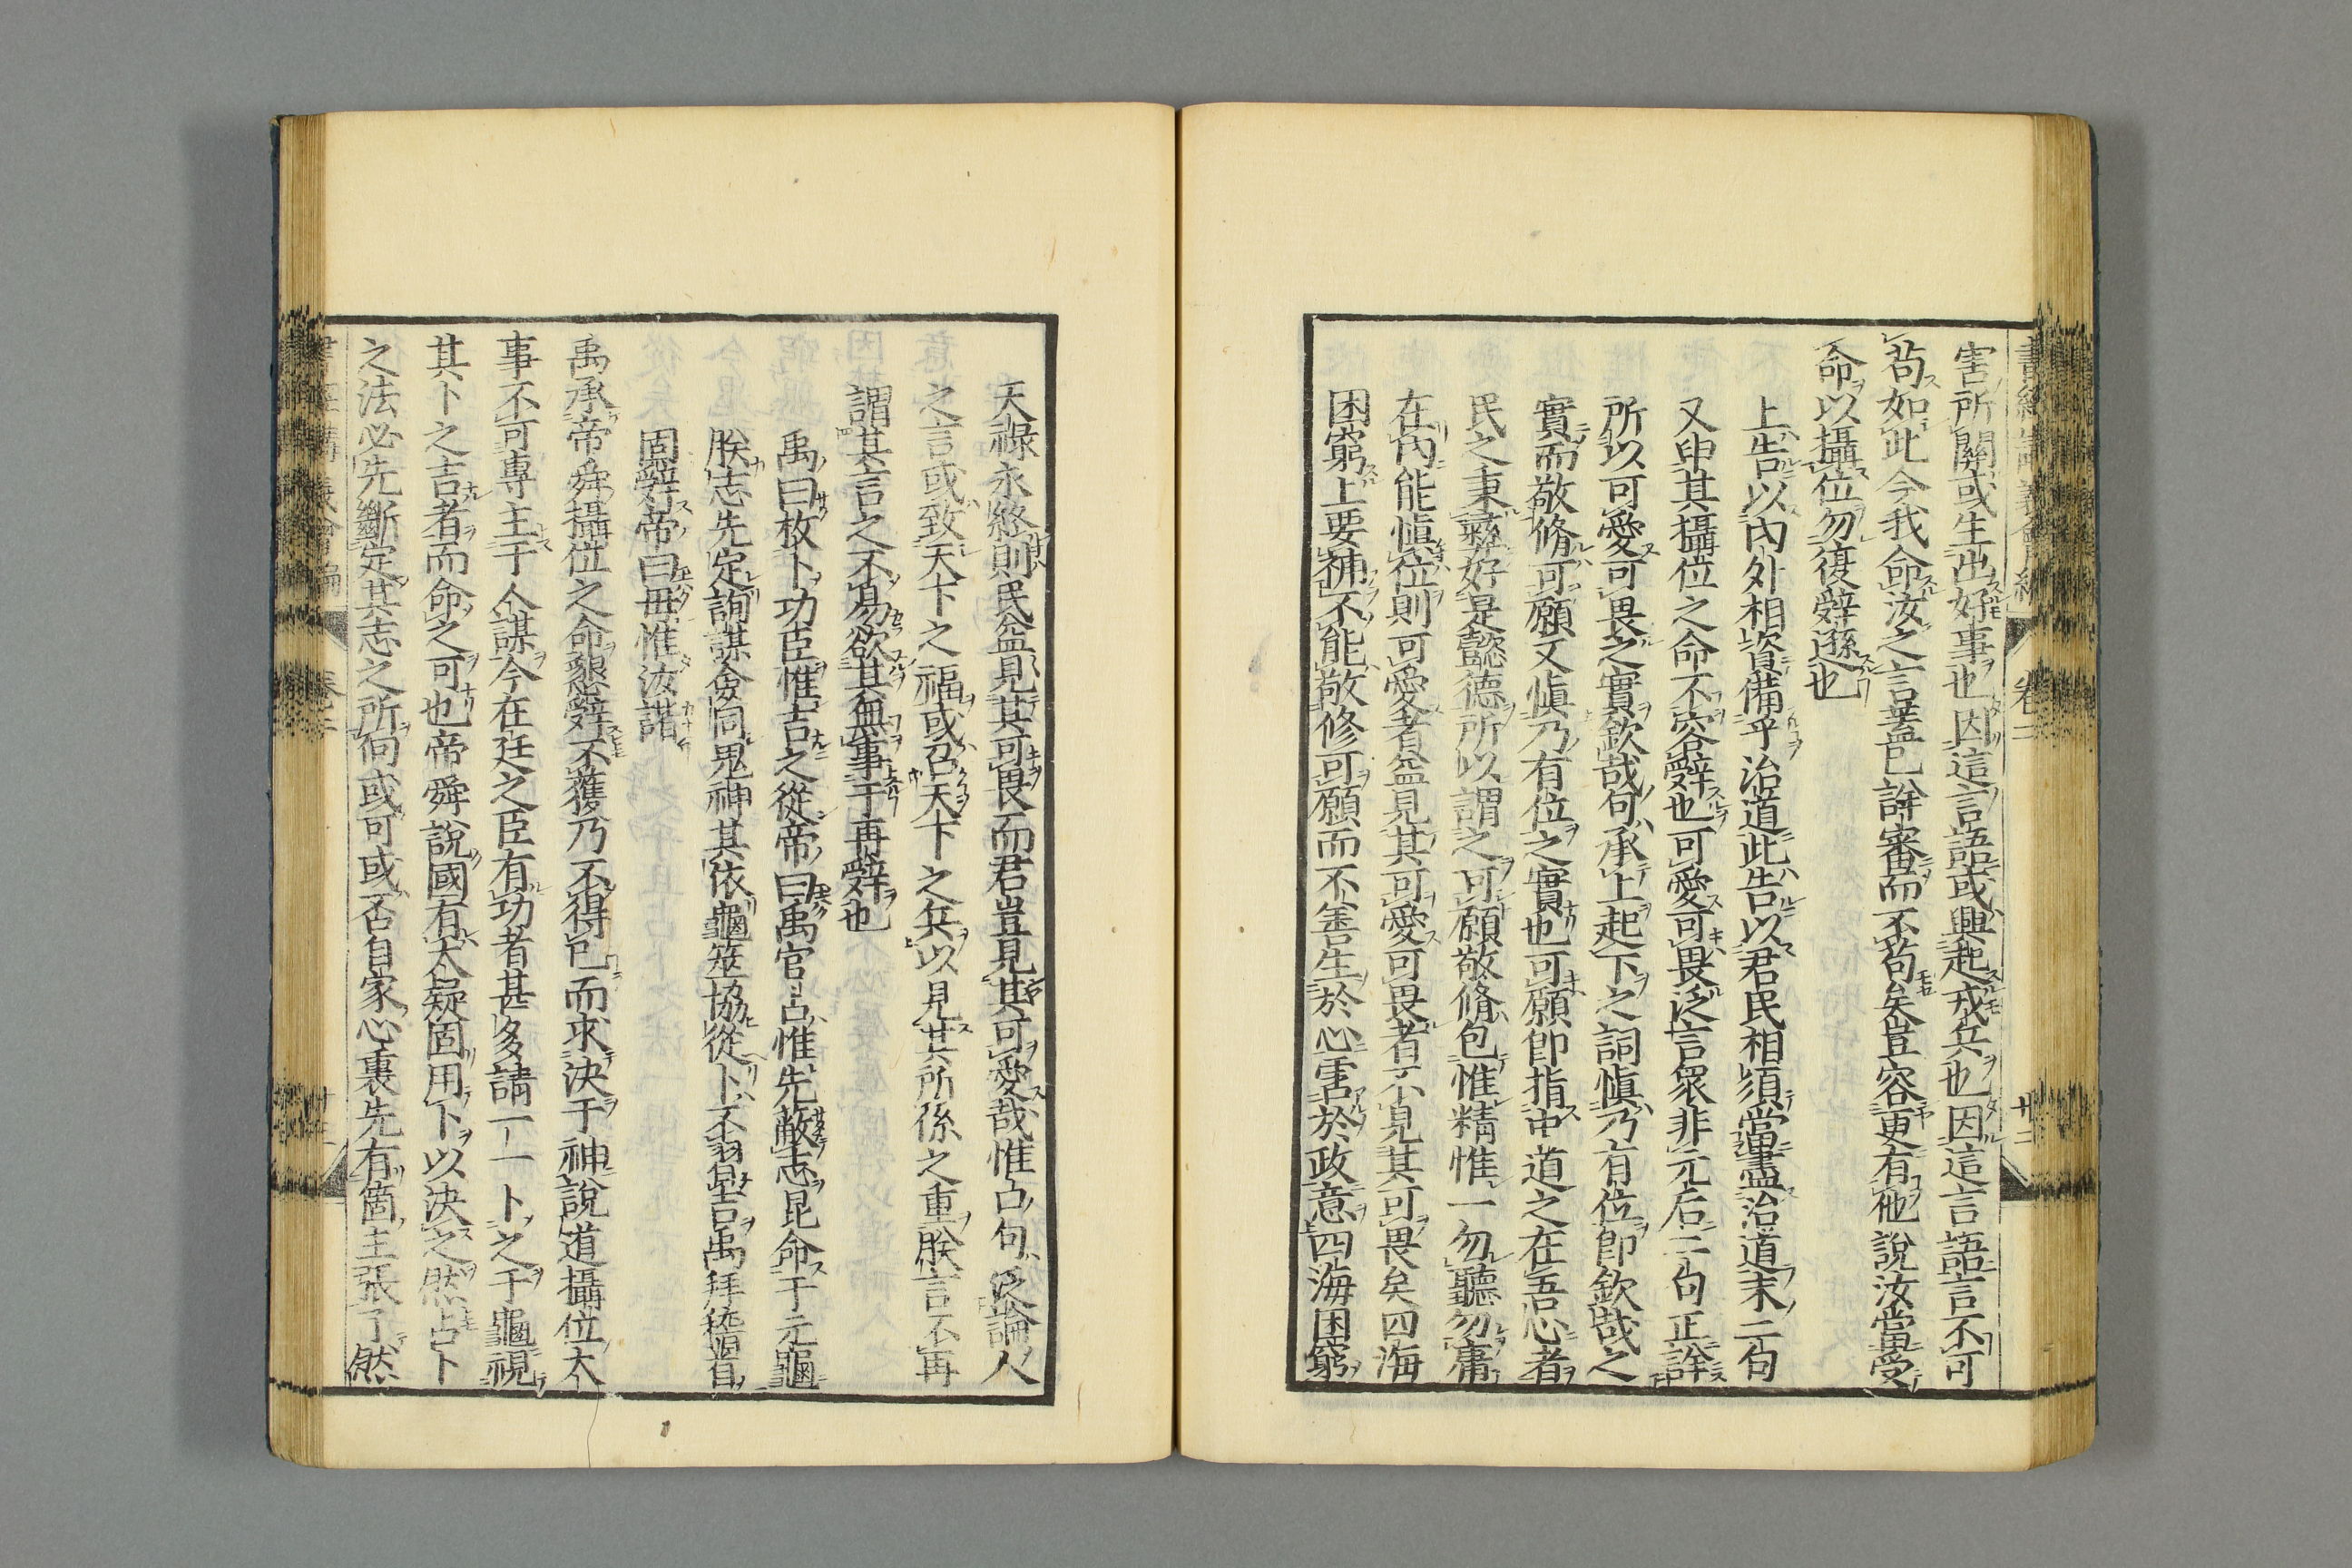 害所關或生出好事也因這言語或興起戎兵也因這言語言不可
苟如此今我命汝之言蓋已詳審而不苟矣豈容更有他說汝當受
命以攝位勿復辭遜也
上告以內外相資備乎治道此告以君民相須當盡治道末二句
又申其攝位之命不容辭也可愛可畏泛言衆非元后二句正詳
所以可愛可畏之實欽哉句承上起下之詞愼乃有位卽欽哉之
實而敬脩可願又愼乃有位之實也可願卽指中道之在吾心者
民之秉彛好是懿德所以謂之可願敬脩包惟精惟一勿聽勿庸
在內能愼位則可愛者益見其可愛可畏者不見其可畏矣四海
困窮上要補不能敬修可願而不善生於心害於政意四海困窮
天祿永終則民益見其可畏而君豈見其可愛哉惟口句泛論人
之言或致天下之福或召天下之兵以見其所係之重朕言不再
謂其言之不易欲其無事于再辭也
禹曰枚卜功臣惟吉之從帝曰禹官占惟先蔽志昆命于元龜
朕志先定詢謀僉同鬼神其依龜筮協從卜不習吉禹拜稽首
固辭帝曰毋惟汝諧
禹承帝舜攝位之命懇辭不獲乃不得已而求決于神說道攝位大
事不可專主于人謀今在廷之臣有功者甚多請一一卜之于龜視
其卜之吉者而命之可也帝舜說國有大疑固用卜以決之然占卜
之法必先斷定其志之所向或可或否自家心裏先有箇主張了然